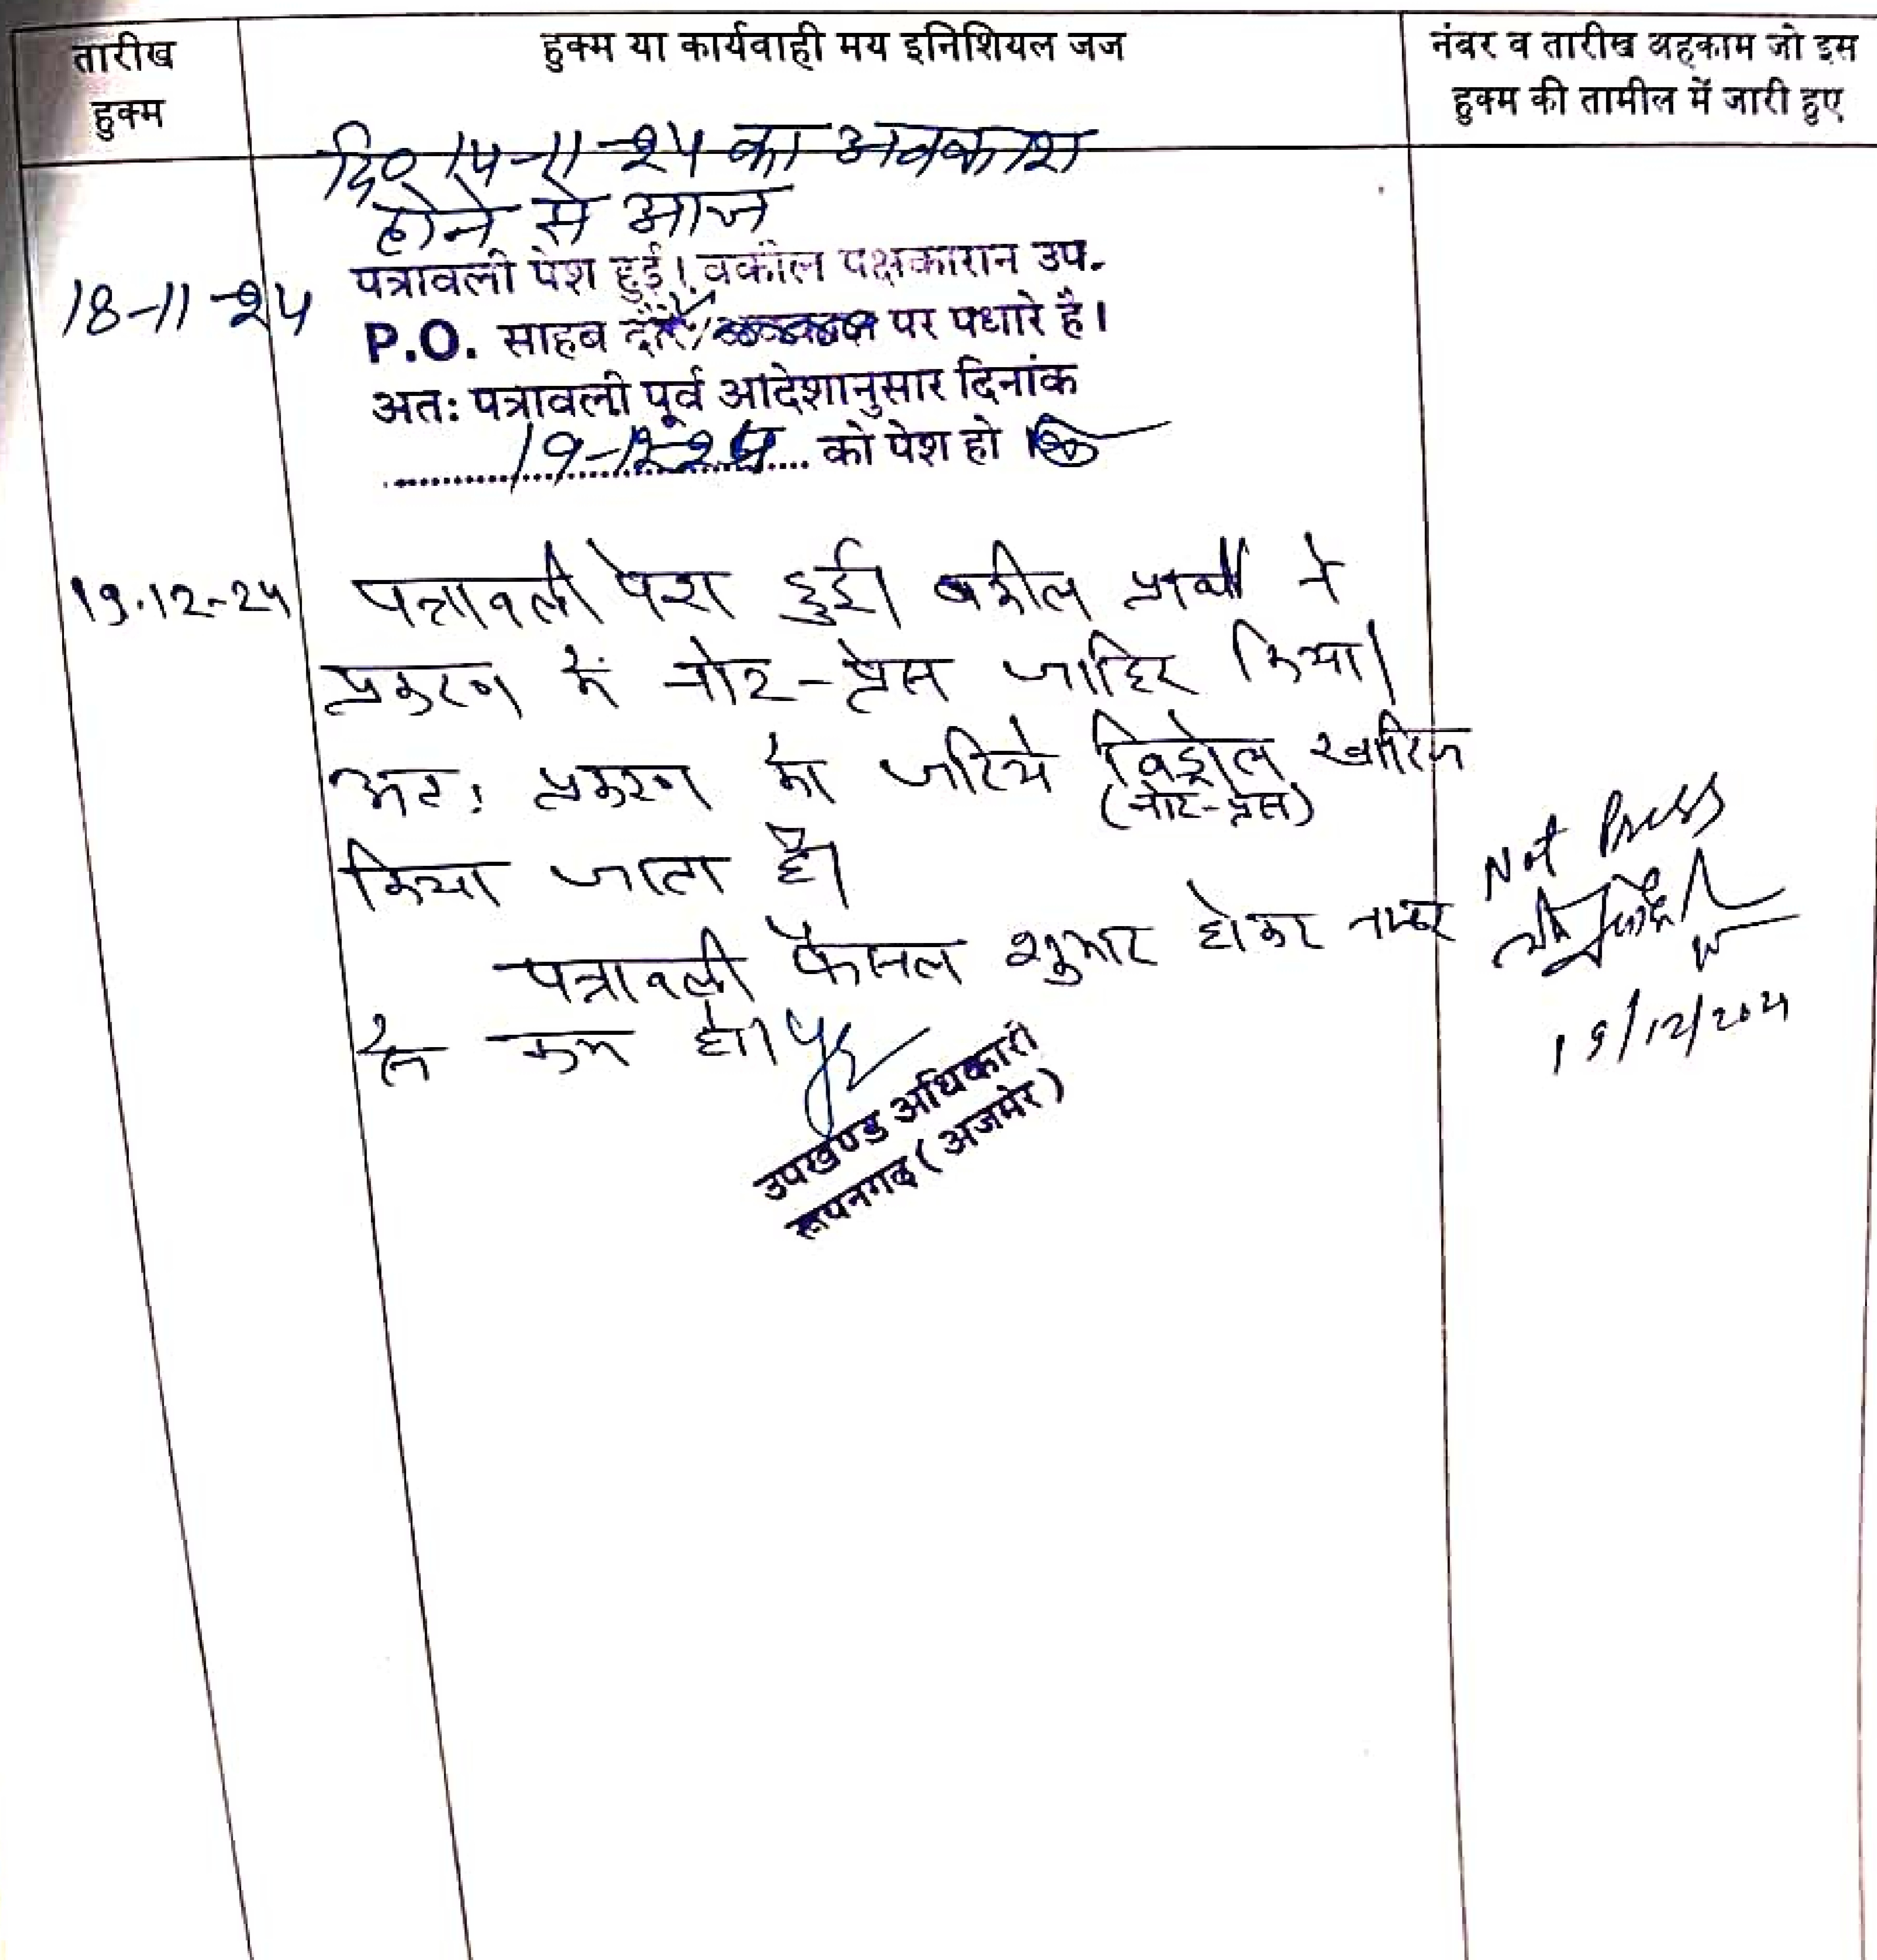 तारीख
हुक्म
हुक्म या कार्यवाही मय इनिशियल जज
नंबर व तारीख अहकाम जो इस
हुक्म की तामील में जारी हुए
दि० 14-11-24 का अवकाश
होने से आज
18-11-24
पत्रावली पेश हुई। वकील पक्षकारान उप.
P.O. साहब दौरे पर पधारे है।
अतः पत्रावली पूर्व आदेशानुसार दिनांक
19-12-24 को पेश हो
19.12-24
पत्रावली पेश हुई। वकील प्रार्थी ने
प्रकरण में नोट-प्रेस जाहिर किया।
अतः प्रकरण को जरिये विड्रोल खारिज
(नोट-प्रेस)
किया जाता है।
पत्रावली फैसल शुमार होकर नम्बर
से कम हो।
उपखण्ड अधिकारी
रूपनगढ़ (अजमेर)
Not Press
19/12/2024